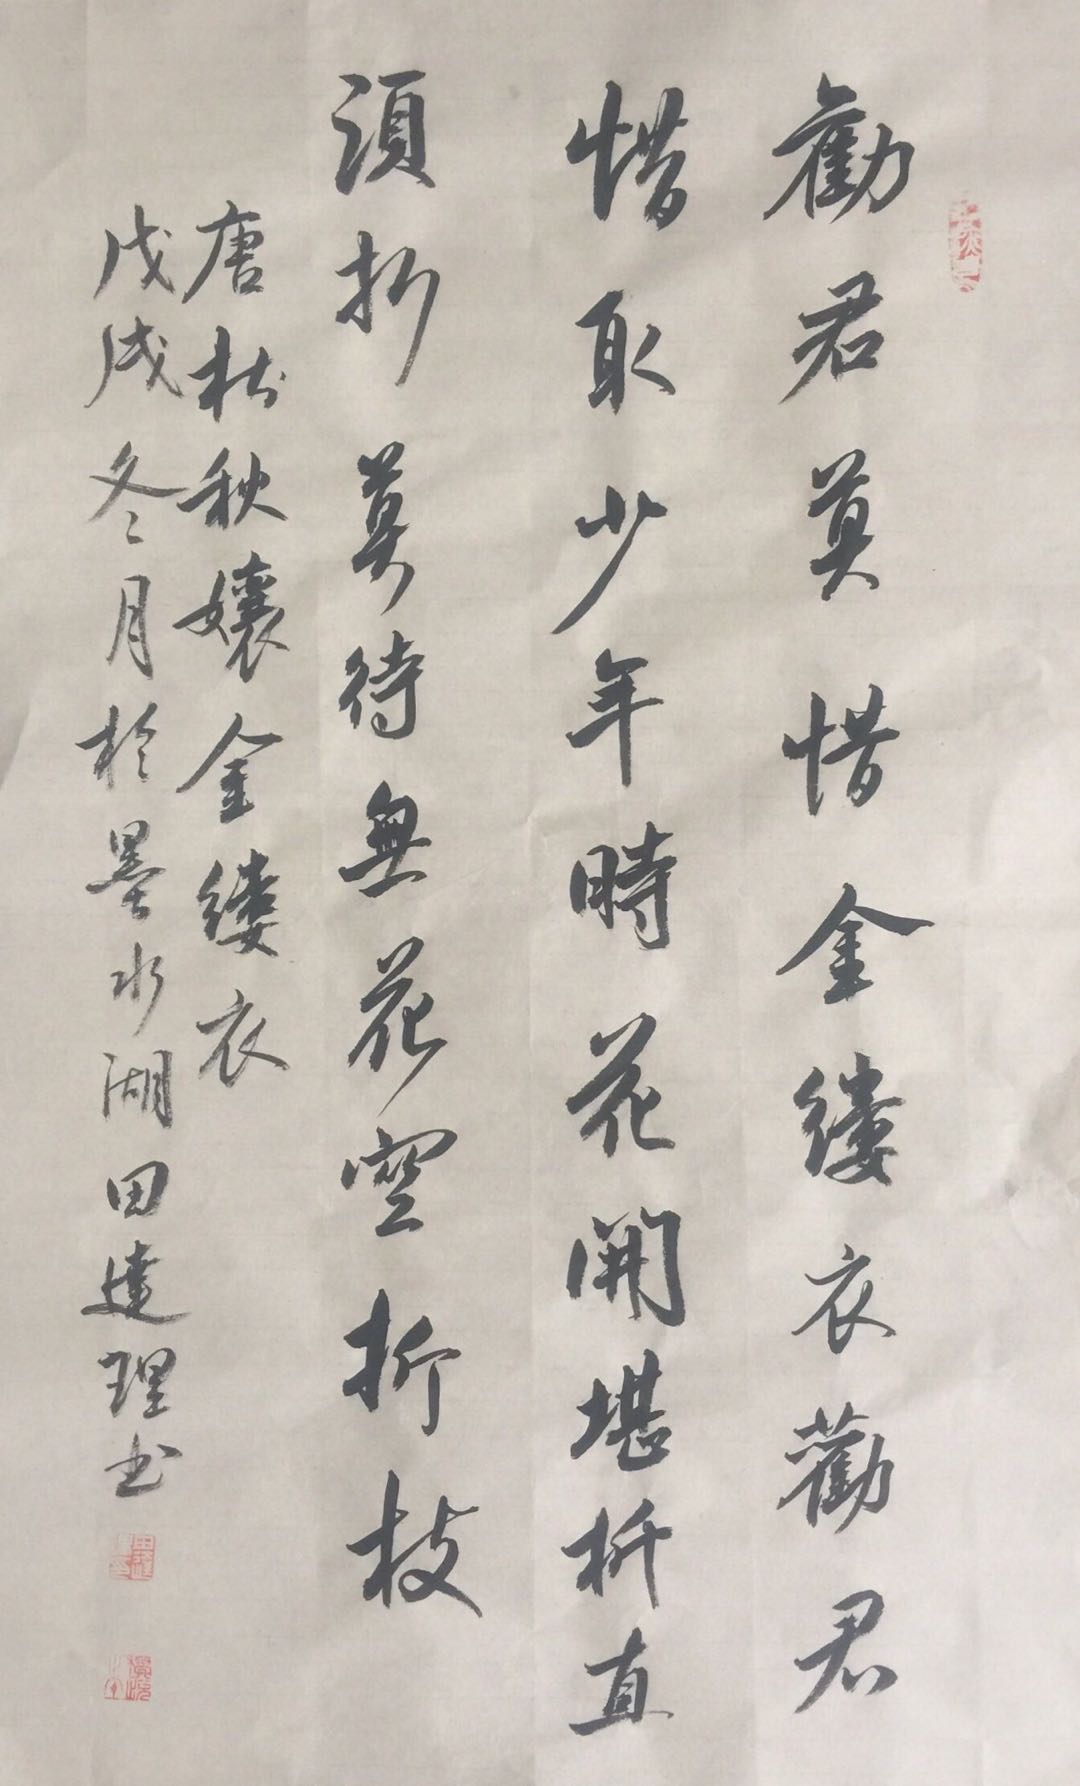 勸君莫惜金縷衣勸君
惜取少年時花開堪折直
須折莫待無花空折枝
唐杜秋孃金縷衣
戊戌冬月於墨水湖田達理书